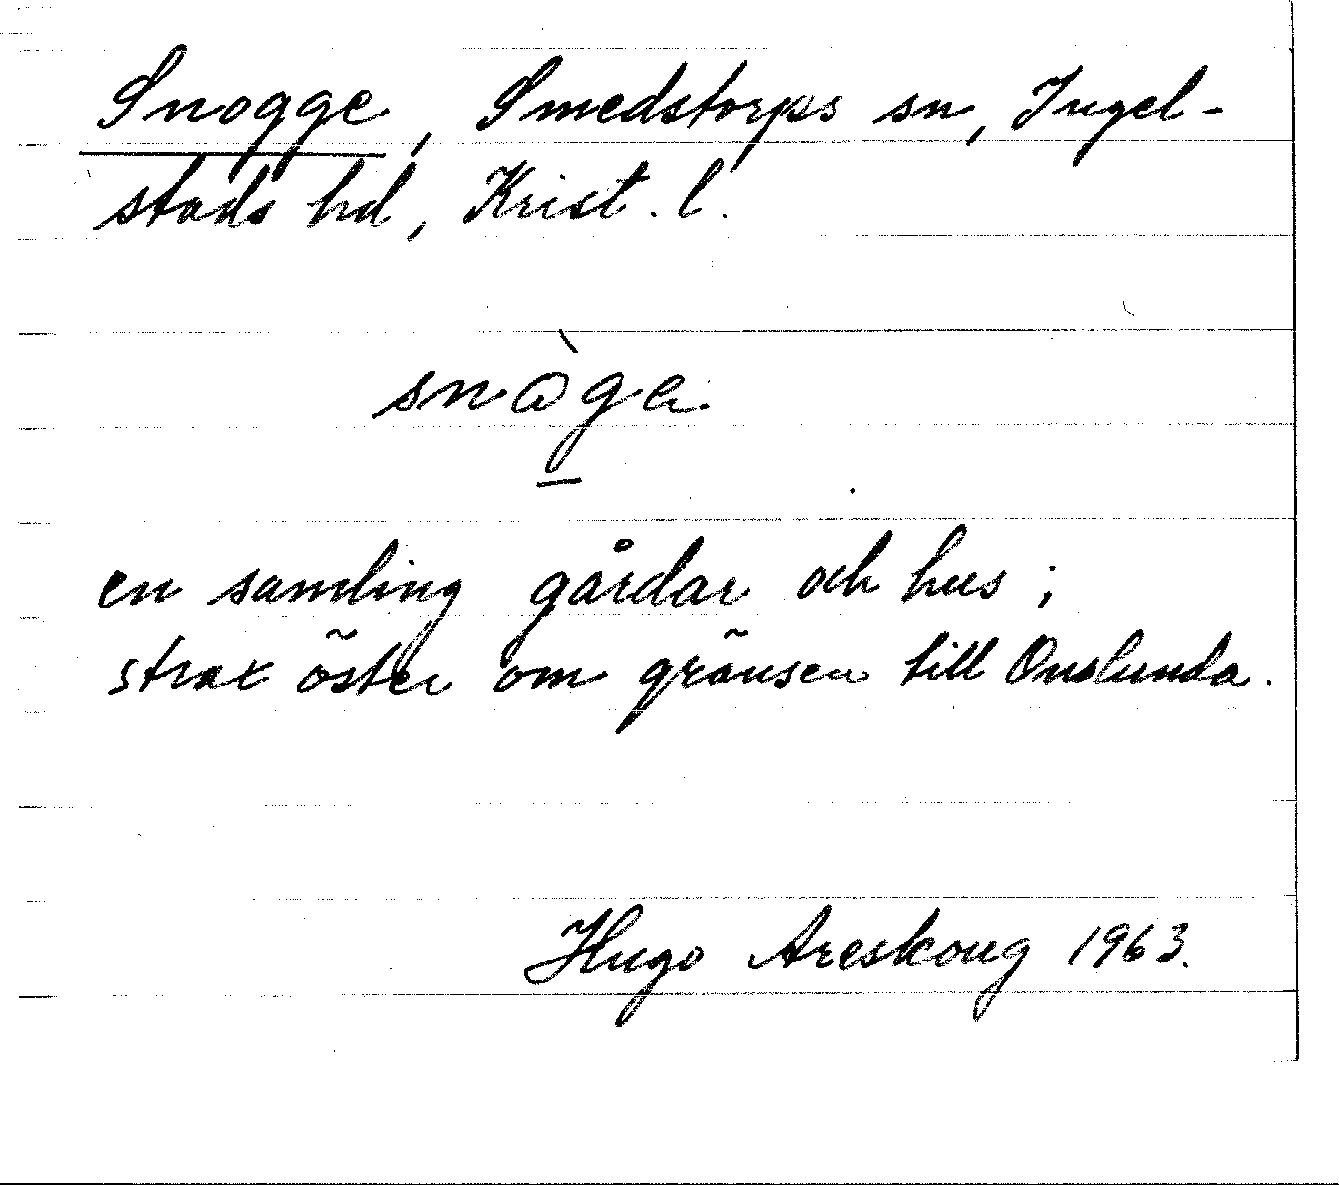 Snogge, Smedstorps sn, Ingel-
stads hd, Krist. l.
en samling gårdar och hus;
strax öster om gränsen till Onslunda.
Hugo Areskoug 1963.